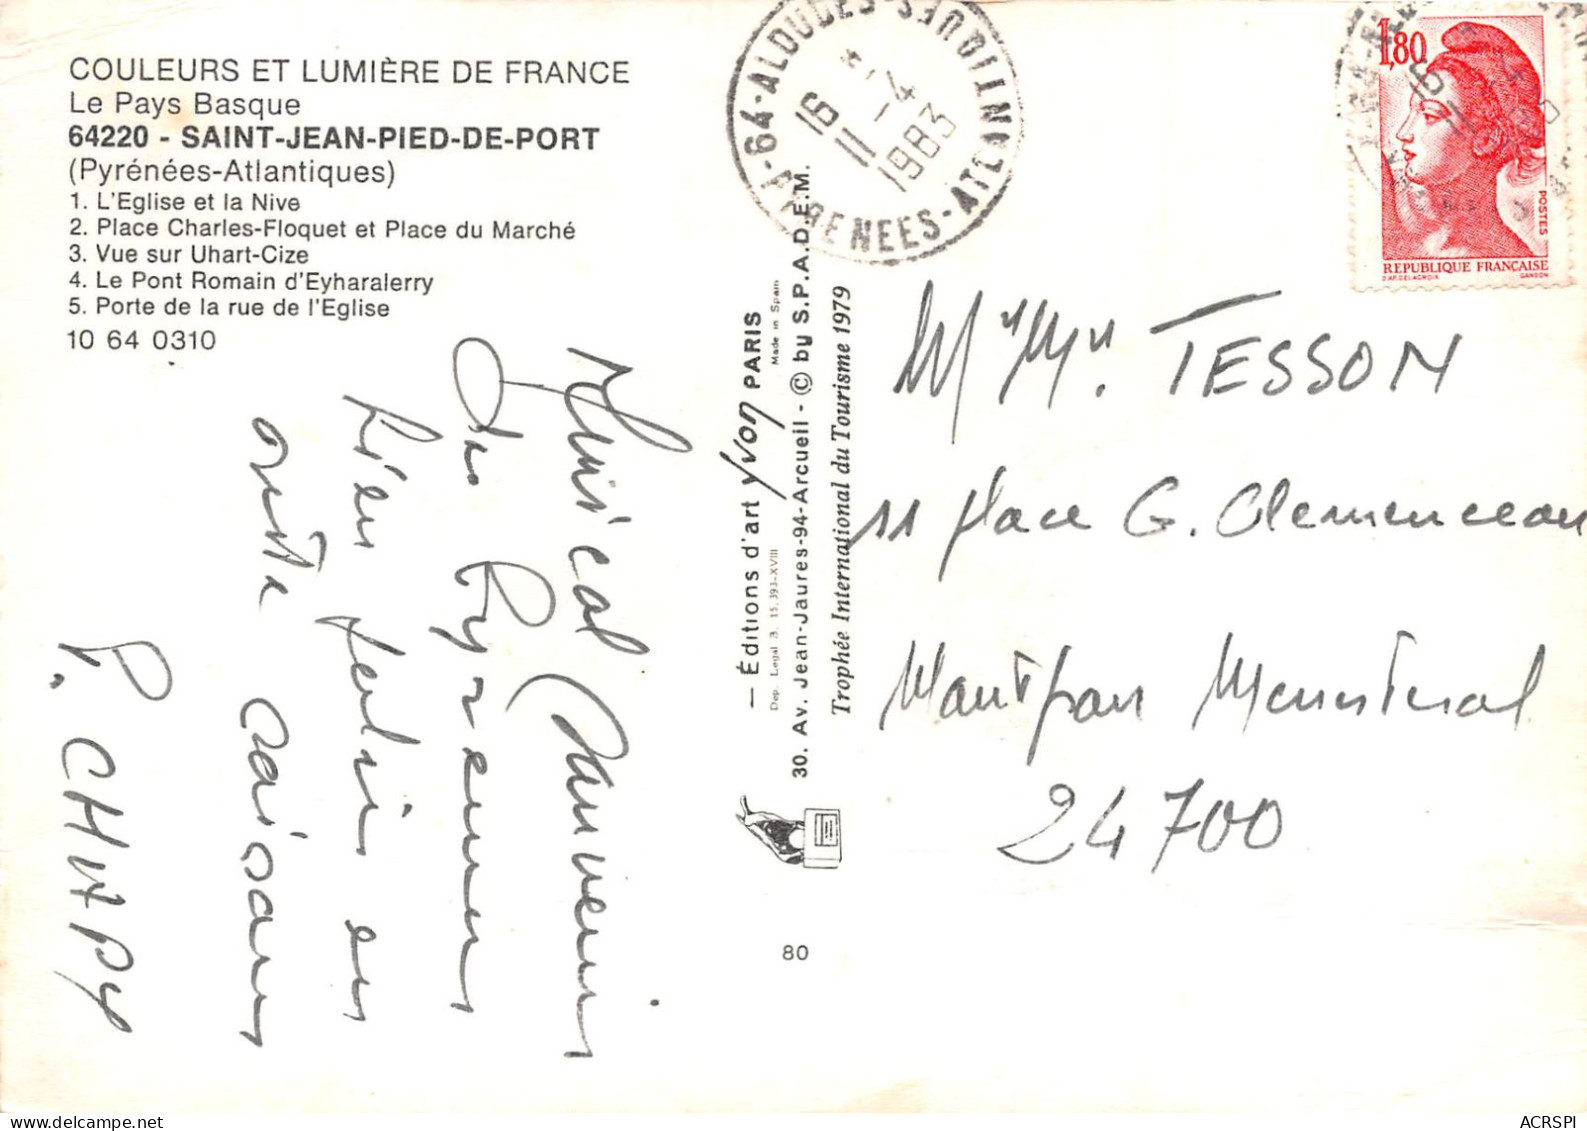 COULEURS ET LUMIÈRE DE FRANCE
Le Pays Basque
64220 - SAINT-JEAN-PIED-DE-PORT
(Pyrénées-Atlantiques)
1. L'Eglise et la Nive
2. Place Charles-Floquet et Place du Marché
3. Vue sur Uhart-Cize
4. Le Pont Romain d'Eyharalerry
5. Porte de la rue de l'Eglise
10 64 0310
Amical Souvenir
des Pyrénées
Rien
P. CHAPPY
— Éditions d'art yvon PARIS
Dep. Legal B. 15.393-XVIII
Made in Spain
30. Av. Jean-Jaures-94-Arcueil - © by S.P.A.D.E.M.
Trophée International du Tourisme 1979
80
64-ALDUDES
PYRENEES-ATLANTIQUES
16 - 4
11 1983
1,80
POSTES
REPUBLIQUE FRANÇAISE
D'AP. DELACROIX GANDON
Mr Mme. TESSON
11 place G. Clemenceau
Montpon Menesterol
24700
ACRSPI